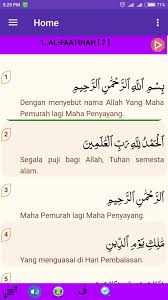 5:29 PM
71%
Home
1. AL-FAATIHAH [ 7 ]
1
بِسْمِ اللَّهِ الرَّحْمَٰنِ الرَّحِيمِ
Dengan menyebut nama Allah Yang Maha
Pemurah lagi Maha Penyayang.
2
الْحَمْدُ لِلَّهِ رَبِّ الْعَالَمِينَ
Segala puji bagi Allah, Tuhan semesta
alam.
3
الرَّحْمَٰنِ الرَّحِيمِ
Maha Pemurah lagi Maha Penyayang.
4
مَالِكِ يَوْمِ الدِّينِ
Yang menguasai di Hari Pembalasan.